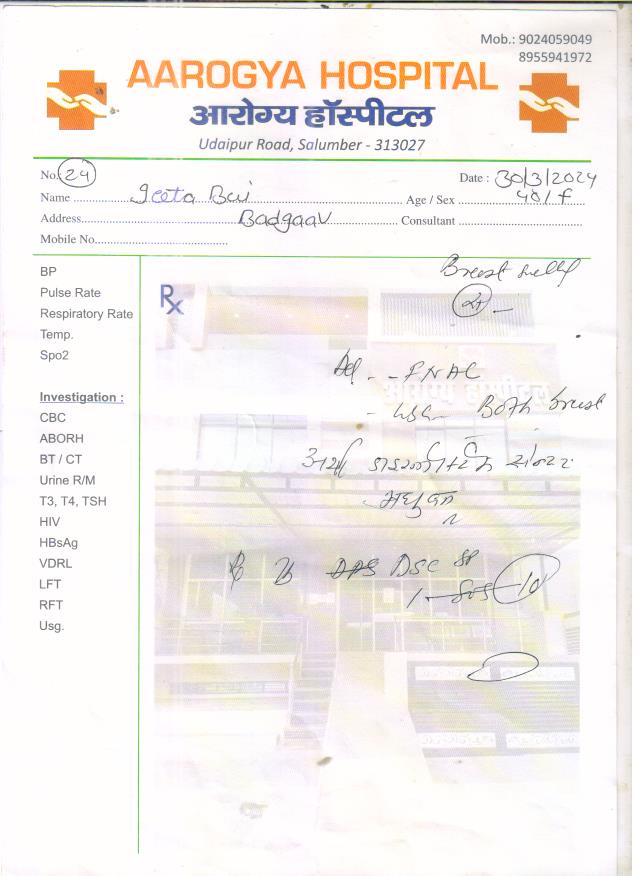 Mob.: 9024059049
8955941972
AAROGYA HOSPITAL
आरोग्य हॉस्पीटल
Udaipur Road, Salumber - 313027
No. 24
Date : 30/3/2024
Name Geeta Bai Age / Sex 40/F
Address Badgaav Consultant
Mobile No.
BP
Pulse Rate
Respiratory Rate
Temp.
Spo2
Investigation :
CBC
ABORH
BT / CT
Urine R/M
T3, T4, TSH
HIV
HBsAg
VDRL
LFT
RFT
Usg.
Rx
Breast
Adv - FNAC
- USG Both breast
DSC SP
1 - SOS 10